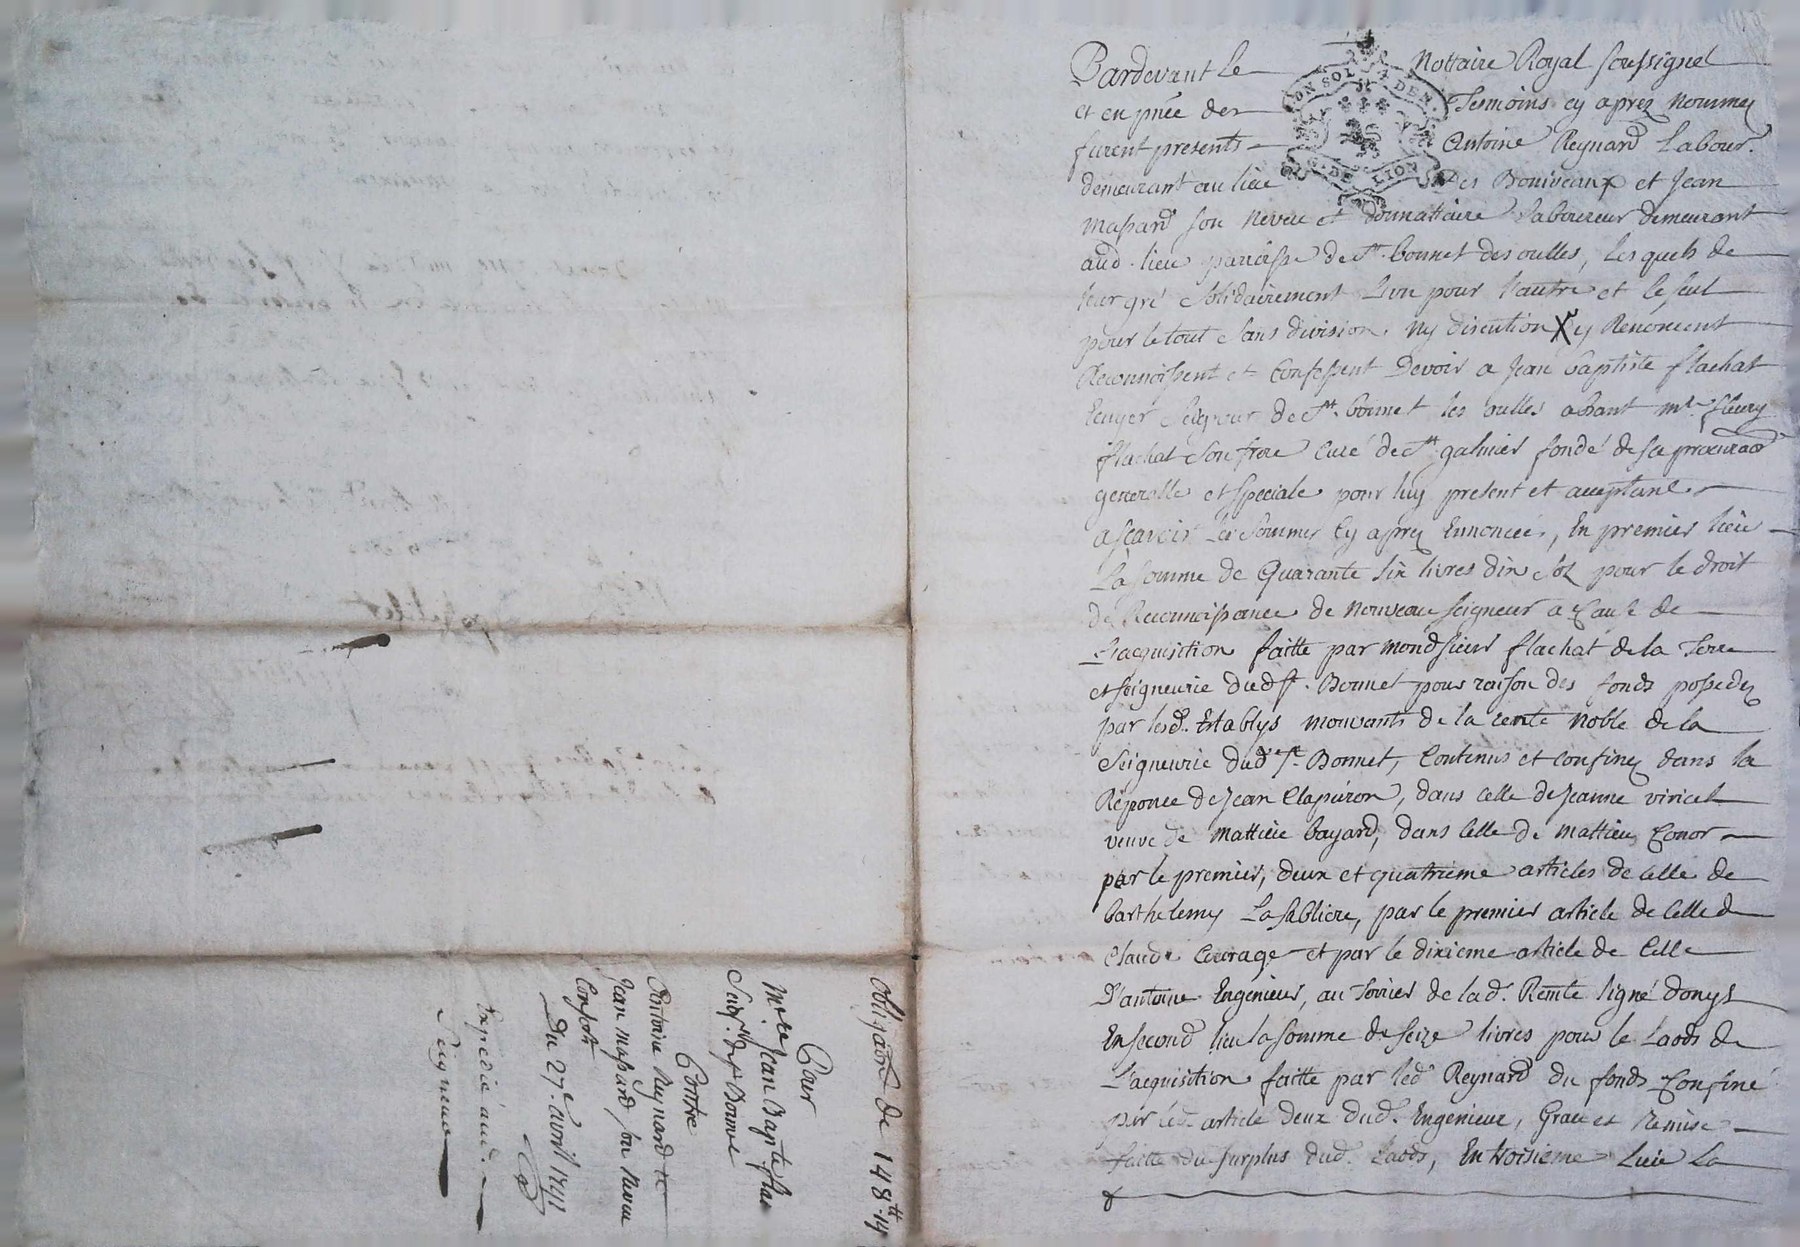 Pardevant le Nottaire Royal soussigné
et en pnce des Tesmoins cy aprez nommez
furent presents Antoine Reynard Labour.
demeurant au lieu des Boniveaux et Jean
Massard son neveu et donnattaire laboureur demeurant
aud. lieu parroisse de St. bonnet des oulles, lesquels de
leur gré solidairement l'un pour l'autre et le seul
pour le tout sans division, ny discution X y Renoncent
Reconnoissent et confessent devoir a Jean baptiste flachat
Ecuyer seigneur de St. bonnet les oulles absant mre. fleury
flachat son frere curé de St. galmier fondé de sa procuraon
generalle et speciale pour luy present et acceptant
a scavoir les sommes cy aprez Ennoncées, En premier lieu
La somme de Quarante six livres dix solz pour le droit
de Reconnoissance de nouveau seigneur a cause de
L'acquisition faitte par mondsieur flachat de la Terre
et seigneurie dud St. Bonnet pour raison des fonds possedez
par lesd. Establys mouvants de la rente noble de la
Seigneurie dud St. Bonnet, contenus et confinez dans la
Réponce de Jean Clapeiron, dans celle de Jeanne viricel
veuve de mattieu bayard, dans celle de mattieu Conor
par le premier, deux et quatrieme articles de celle de
barthelemy La sabliere, par le premier article de celle de
claude Courage et par le dixieme article de celle
d'antoine Engenieur, au Terrier de lad. Rente signé donys
En second lieu la somme de seize livres pour le Laods de
L'acquisition faitte par led Reynard du fonds confiné
par led. article deux dud. Engenieur, Grace et Remise
faitte du surplus dud. Laods, En troisieme Lieu La
obligaon de 148tt-14
Pour
Mre Jean Baptte flac
Seigr. de St Bonnet
Contre
Antoine Reynard et
Jean massard, son neveu
Consorts
Du 27e avril 1741
Expedié aud.
Seigneur